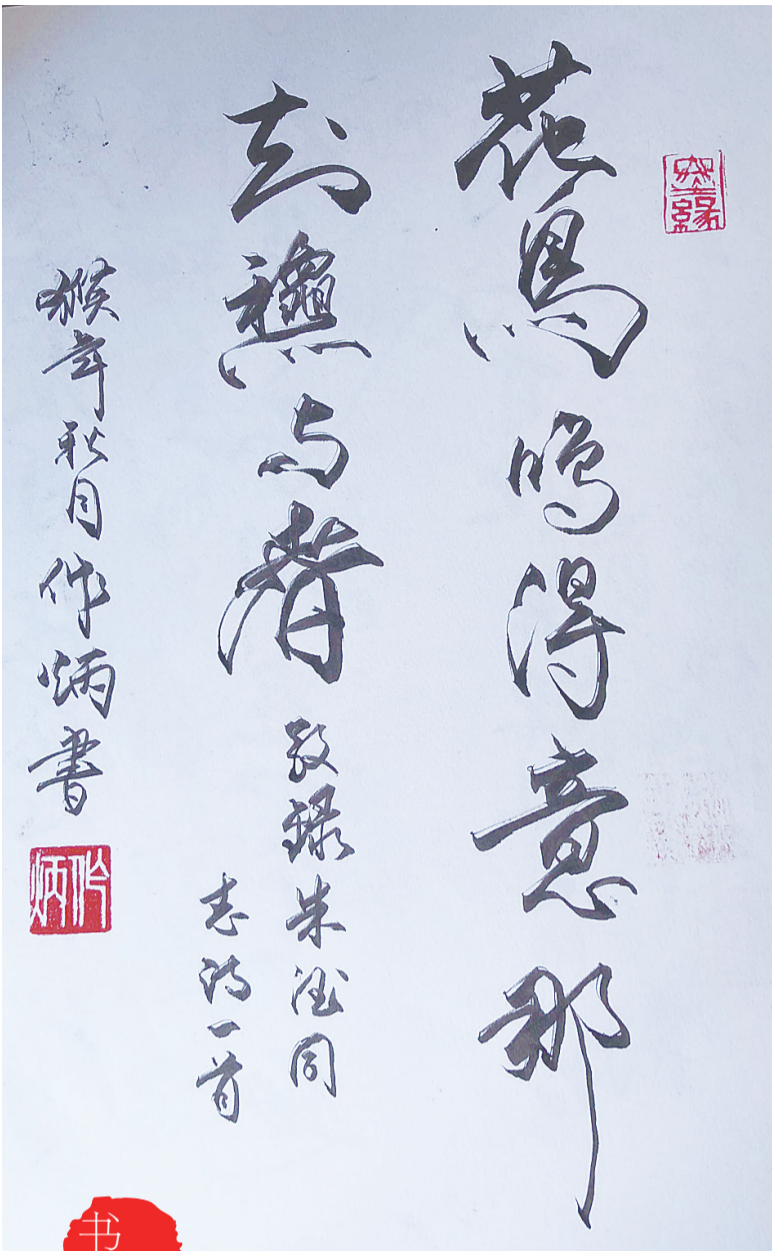 花鳥鸣得意那
知龝与春
敬録朱德同
志诗一首
猴年秋月作炳書
作炳
墨緣
书